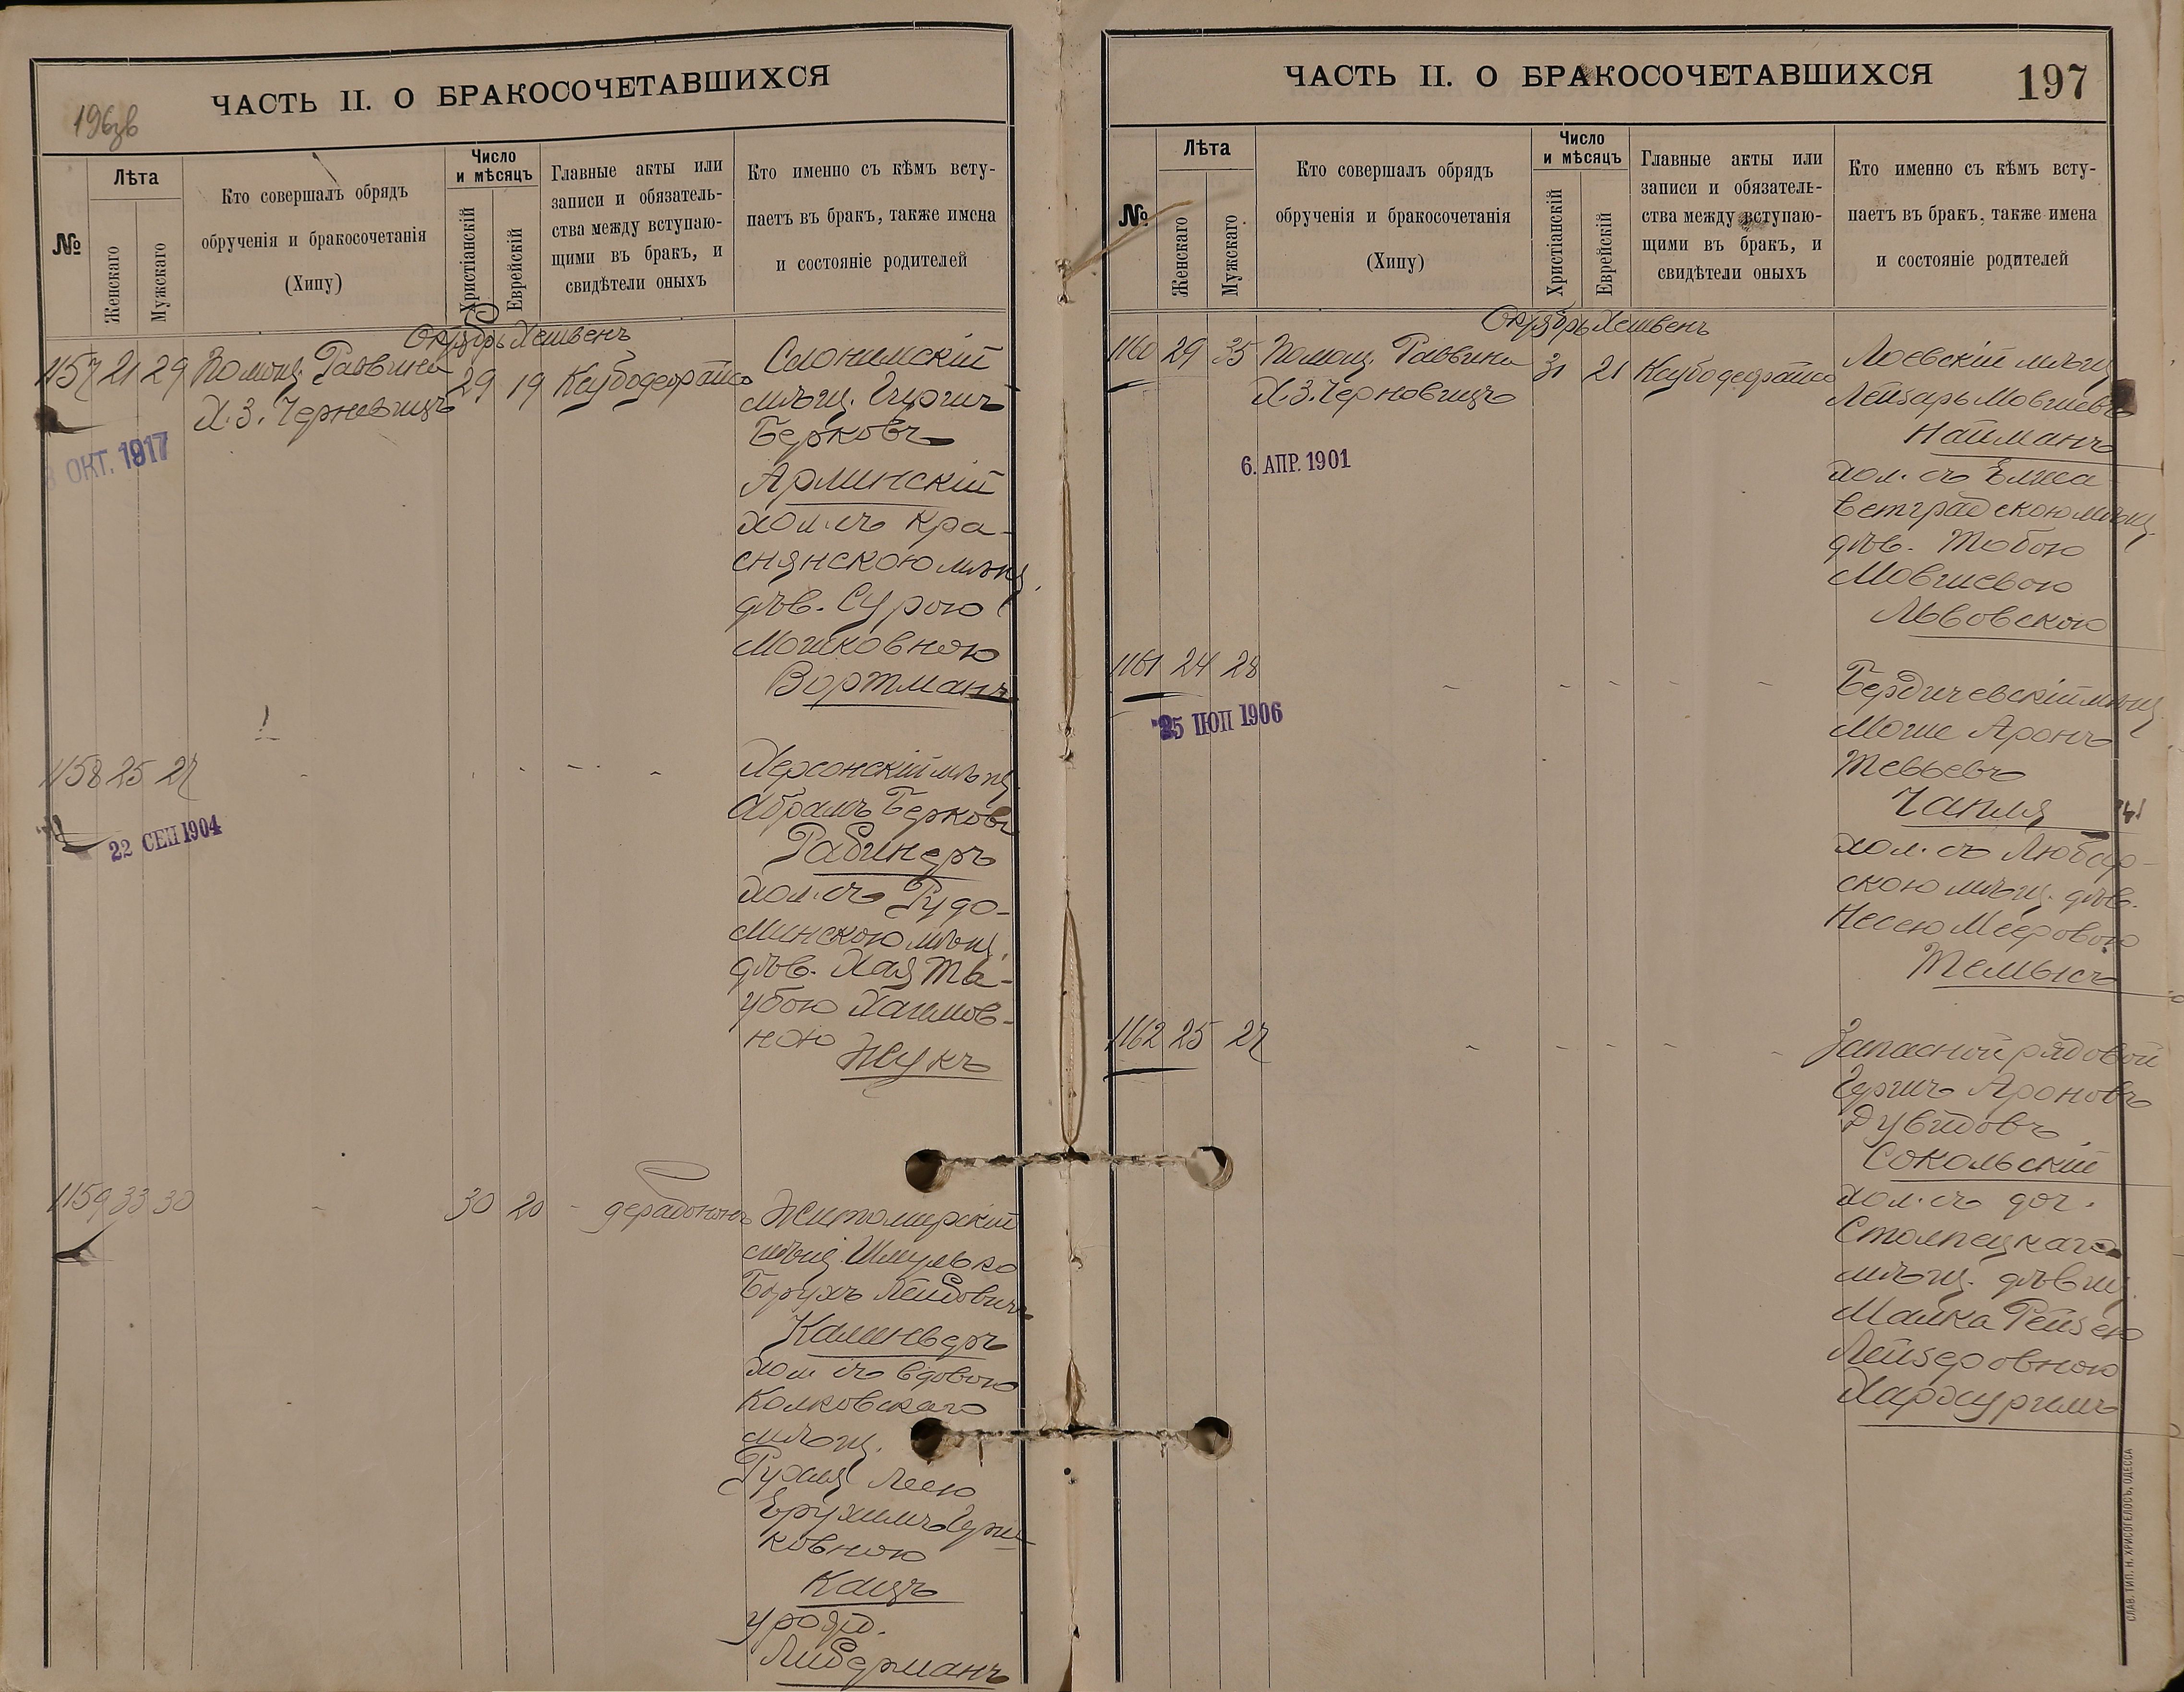 196зв
ЧАСТЬ II. О БРАКОСОЧЕТАВШИХСЯ
№
Лѣта
Женскаго
Мужскаго
Кто совершалъ обрядъ
обрученія и бракосочетанія
(Хипу)
Число
и мѣсяцъ
Христіанскій
Еврейскій
Главные акты или
записи и обязатель-
ства между вступаю-
щими въ бракъ, и
свидѣтели оныхъ
Кто именно съ кѣмъ всту-
паетъ въ бракъ, также имена
и состояніе родителей
Октябрь Хешвенъ
1157 21 29 Помощ. Раввина
Х. З. Черновицъ
29 19
7 ОКТ. 1917
Слонимскій
мѣщ. Гиршъ
Берковъ
Арлинскій
хол. съ Кра-
снянскою мѣщ.
дѣв. Сурою
Мошковною
Вортманъ
1158 25 27 - - - - -
22 СЕП 1904
Херсонскій мѣщ.
Абрамъ Берковъ
Рабинеръ
хол. съ Рудо-
минскою мѣщ.
дѣв. Хая Та-
убою Хаимов-
ною Жукъ
1159 33 30 - 30 20 -
Житомирскій
мѣщ. Шмулько
Борухъ Лейбовичъ
Калинверъ
хол. съ вдовою
Колковскаго
мѣщ.
Рухля Леею
Ерухимъ Герш-
ковною
Кацъ
урожд.
Либерманъ
ЧАСТЬ II. О БРАКОСОЧЕТАВШИХСЯ
197
№
Лѣта
Женскаго
Мужскаго
Кто совершалъ обрядъ
обрученія и бракосочетанія
(Хипу)
Число
и мѣсяцъ
Христіанскій
Еврейскій
Главные акты или
записи и обязатель-
ства между вступаю-
щими въ бракъ, и
свидѣтели оныхъ
Кто именно съ кѣмъ всту-
паетъ въ бракъ, также имена
и состояніе родителей
Октябрь Хешвенъ
1160 29 35 Помощ. Раввина
Х. З. Черновицъ
31 21
6. АПР. 1901
Лоевскій мѣщ.
Лейзарь Мовшевъ
Найманъ
хол. съ Елиса
ветградскою мѣщ.
дѣв. Тобою
Мовшевою
Львовскою
1161 24 28 - - - - -
25 1906
Бердичевскій мѣщ.
Моше Аронъ
Тевьевъ
Чапля
хол. съ Любар-
скою мѣщ. дѣв.
Несею Мееровою
Темысъ
1162 25 27 - - - - -
Запасной рядовой
Гершъ Ароновъ
Дувидовъ
Сокольскій
хол. съ доч.
Столпецкаго
мѣщ. дѣвиц.
Малка Рейзею
Лейзеровною
Хархуримъ
СЛАВ. ТИП. Н. ХРИСОГЕЛОСЪ, ОДЕССА